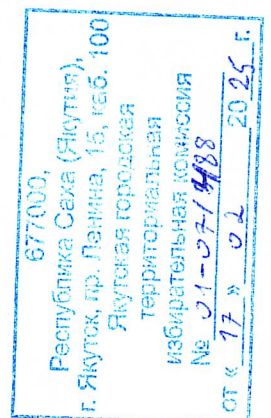 677000,
Республика Саха (Якутия),
г. Якутск, пр. Ленина, 15, каб. 100
Якутская городская
территориальная
избирательная комиссия
№ 01-07/
от « 17 » 02 2025 г.